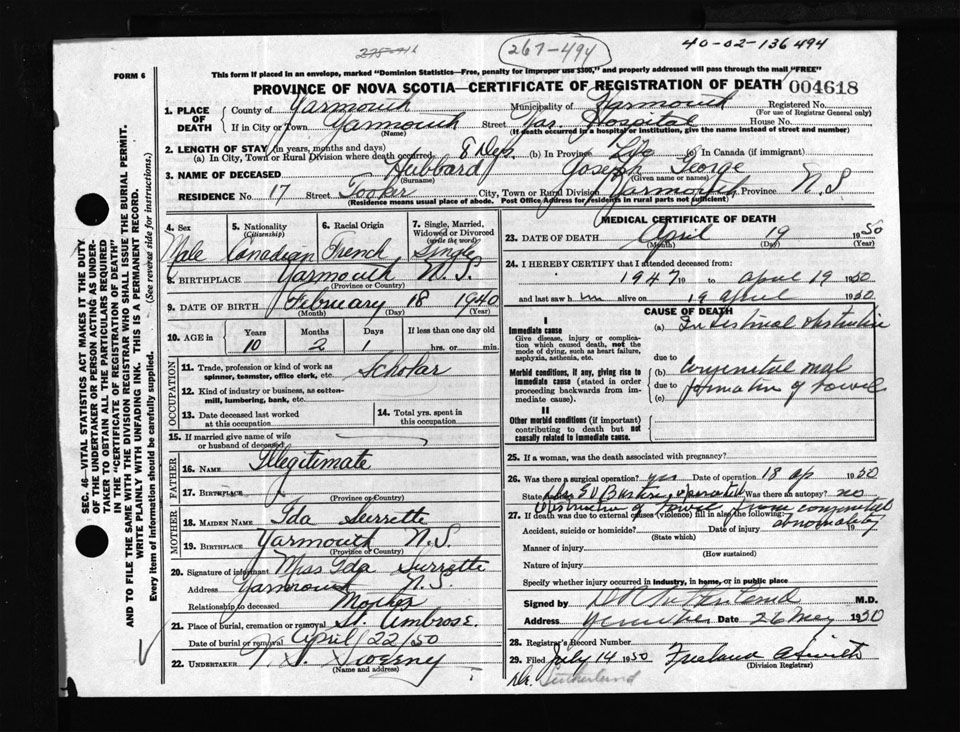 267-494
40-02-136494
FORM 6
This form if placed in an envelope, marked "Dominion Statistics—Free, penalty for improper use $300," and properly addressed will pass through the mail "FREE"
PROVINCE OF NOVA SCOTIA—CERTIFICATE OF REGISTRATION OF DEATH 004618
SEC. 46—VITAL STATISTICS ACT MAKES IT THE DUTY
OF THE UNDERTAKER OR PERSON ACTING AS UNDER-
TAKER TO OBTAIN ALL THE PARTICULARS REQUIRED
IN THE "CERTIFICATE OF REGISTRATION OF DEATH"
AND TO FILE THE SAME WITH THE DIVISION REGISTRAR WHO SHALL ISSUE THE BURIAL PERMIT.
WRITE PLAINLY WITH UNFADING INK. THIS IS A PERMANENT RECORD.
Every item of information should be carefully supplied. (See reverse side for instructions.)
1. PLACE OF DEATH County of Yarmouth Municipality of Yarmouth Registered No.
(For use of Registrar General only)
If in City or Town Yarmouth Street Yar. Hospital House No.
(Name) (If death occurred in a hospital or institution, give the name instead of street and number)
2. LENGTH OF STAY (in years, months and days)
(a) In City, Town or Rural Division where death occurred 8 Dys. (b) In Province Life (c) In Canada (if immigrant)
3. NAME OF DECEASED Hubbard Joseph George
(Surname) (Given name or names)
RESIDENCE No. 17 Street Tooker City, Town or Rural Division Yarmouth Province N.S
(Residence means usual place of abode. Post Office Address for residents in rural parts not sufficient)
4. Sex 5. Nationality (Citizenship) 6. Racial Origin 7. Single, Married, Widowed or Divorced (write the word)
Male Canadian French Single
8. BIRTHPLACE Yarmouth N.S.
(Province or Country)
9. DATE OF BIRTH February 18 1940
(Month) (Day) (Year)
10. AGE in Years Months Days If less than one day old
10 2 1 hrs. or min.
OCCUPATION
11. Trade, profession or kind of work as spinner, teamster, office clerk, etc. Scholar
12. Kind of industry or business, as cotton-mill, lumbering, bank, etc.
13. Date deceased last worked at this occupation 14. Total yrs. spent in this occupation
15. If married give name of wife or husband of deceased
FATHER
16. NAME Illegitimate
17. BIRTHPLACE
(Province or Country)
MOTHER
18. MAIDEN NAME Ida Surrette
19. BIRTHPLACE Yarmouth N.S.
(Province or Country)
20. Signature of informant Miss Ida Surrette
Address Yarmouth N.S.
Relationship to deceased Mother
21. Place of burial, cremation or removal St. Ambrose.
Date of burial or removal April 22/50
22. UNDERTAKER Sweeny
(Name and address)
MEDICAL CERTIFICATE OF DEATH
23. DATE OF DEATH April 19 1950
(Month) (Day) (Year)
24. I HEREBY CERTIFY that I attended deceased from:
1947 19 to April 19 1950
and last saw him alive on 19 April 1950
CAUSE OF DEATH
I
Immediate cause
Give disease, injury or complication which caused death, not the mode of dying, such as heart failure, asphyxia, asthenia, etc.
(a) Intestinal obstruction
due to
Morbid conditions, if any, giving rise to immediate cause (stated in order proceeding backwards from immediate cause).
(b) Congenital mal
due to formation of bowel
(c)
II
Other morbid conditions (if important) contributing to death but not causally related to immediate cause.
25. If a woman, was the death associated with pregnancy?
26. Was there a surgical operation? yes Date of operation 18 Ap 1950
State findings Was there an autopsy? no
Obstruction of bowel from congenital abnormality
27. If death was due to external causes (violence) fill in also the following:
Accident, suicide or homicide? Date of injury 19
(State which)
Manner of injury
(How sustained)
Nature of injury
Specify whether injury occurred in industry, in home, or in public place
Signed by Sutherland M.D.
Address Date 26 May 1950
28. Registrar's Record Number
29. Filed July 14 1950
(Division Registrar)
Dr. Sutherland